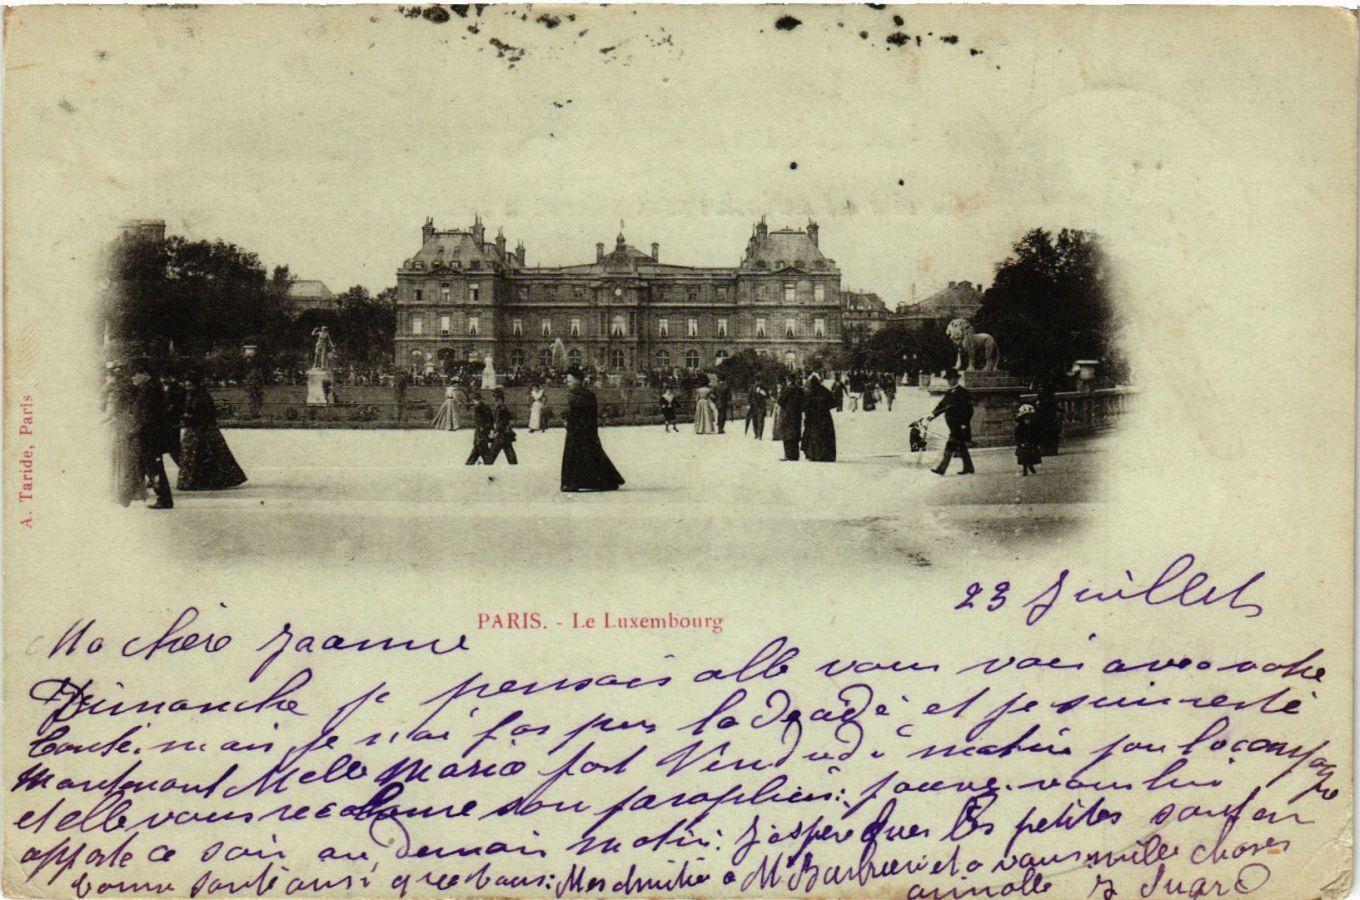 A. Taride, Paris
PARIS. - Le Luxembourg
23 Juillet
Ma chère Jeanne
Dimanche je pensais allé vous voir avec votre
tante. mais je n'ai pas pu la Décidé et je suis resté
maintenant Melle Marie part Vendredi matin pour
et elle vous reclame son parapluie: pouvez. vous lui
apporté ce soir ou Demain matin: J'espère que les petites sont en
bonne santé aussi que vous: Mes amitié a M Barbier et a vous mille choses